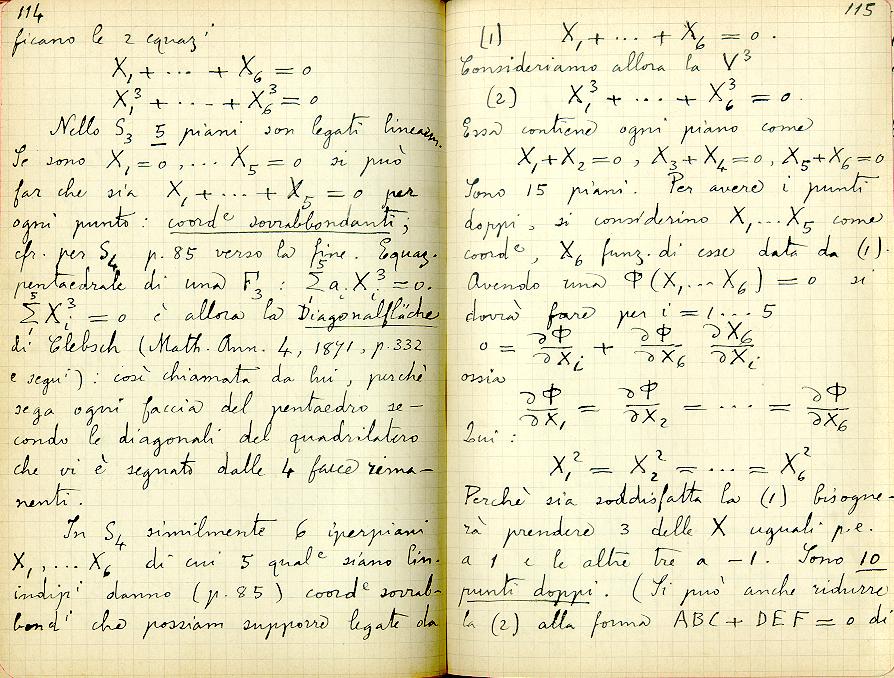 114
ficano le 2 equaz^i
X_1 + ... + X_6 = 0
X_1^3 + ... + X_6^3 = 0
Nello S_3 5 piani son legati linearm.
Se sono X_1=0, ... X_5=0 si può
far che sia X_1 + ... + X_5 = 0 per
ogni punto: coord^e sovrabbondanti;
cfr. per S_4 p. 85 verso la fine. Equaz.
pentaedrale di una F_3 : Σ_1^5 a_i X_i^3 = 0.
Σ_1^5 X_i^3 = 0 è allora la Diagonalfläche
di Clebsch (Math. Ann. 4, 1871, p. 332
e segu^i): così chiamata da lui, perchè
sega ogni faccia del pentaedro se-
condo le diagonali del quadrilatero
che vi è segnato dalle 4 facce rima-
nenti.
In S_4 similmente 6 iperpiani
X_1, ... X_6 di cui 5 qual^e siano lin.
indip^i danno (p. 85) coord^e sovrab-
bond^i che possiam supporre legate da
115
(1) X_1 + ... + X_6 = 0.
Consideriamo allora la V^3
(2) X_1^3 + ... + X_6^3 = 0.
Essa contiene ogni piano come
X_1+X_2=0, X_3+X_4=0, X_5+X_6=0
Sono 15 piani. Per avere i punti
doppi, si considerino X_1...X_5 come
coord^e, X_6 funz. di esse data da (1).
Avendo una Φ(X_1...X_6) = 0 si
dovrà fare per i = 1...5
0 = ∂Φ/∂X_i + ∂Φ/∂X_6 ∂X_6/∂X_i
ossia
∂Φ/∂X_1 = ∂Φ/∂X_2 = ... = ∂Φ/∂X_6
Qui:
X_1^2 = X_2^2 = ... = X_6^2
Perchè sia soddisfatta la (1) bisogne-
rà prendere 3 delle X uguali p.e.
a 1 e le altre tre a -1. Sono 10
punti doppi. (Si può anche ridurre
la (2) alla forma ABC + DEF = 0 di